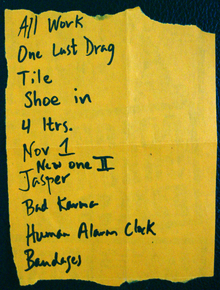 All Work
One Last Drag
Tile
Shoe in
4 Htrs.
Nov 1
New one II
Jasper
Bad Karma
Human Alarm Clock
Bandages